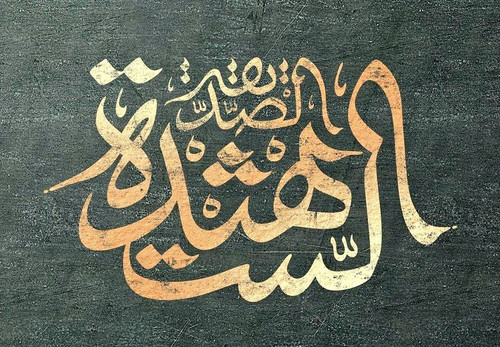 الصِّدِّيقة
الشّهيدة